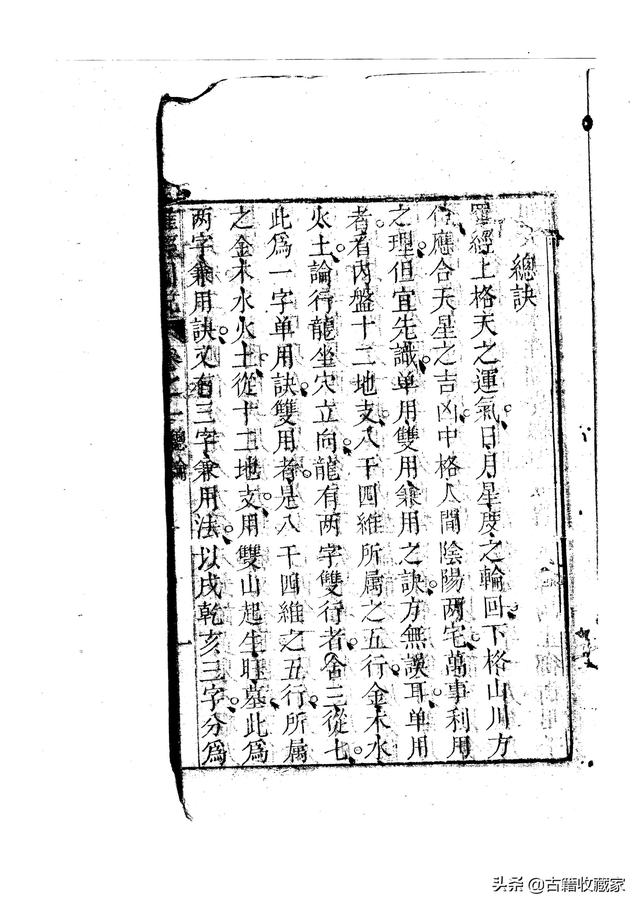 總訣
羅經上格天之運氣日月星度之輪回下格山川方
位應合天星之吉凶中格人間陰陽兩宅萬事利用
之理但宜先識单用雙用兼用之訣方無誤耳单用
者看內盤十二地支八干四維所属之五行金木水
火土論行龍坐穴立向龍有两字雙行者舍三從七
此爲一字单用訣雙用者是八干四維之五行所属
之金木水火土從十二地支用雙山起生旺墓此爲
两字兼用訣又有三字兼用法以戌乾亥三字分爲
卷之一 總論
头条 @古籍收藏家